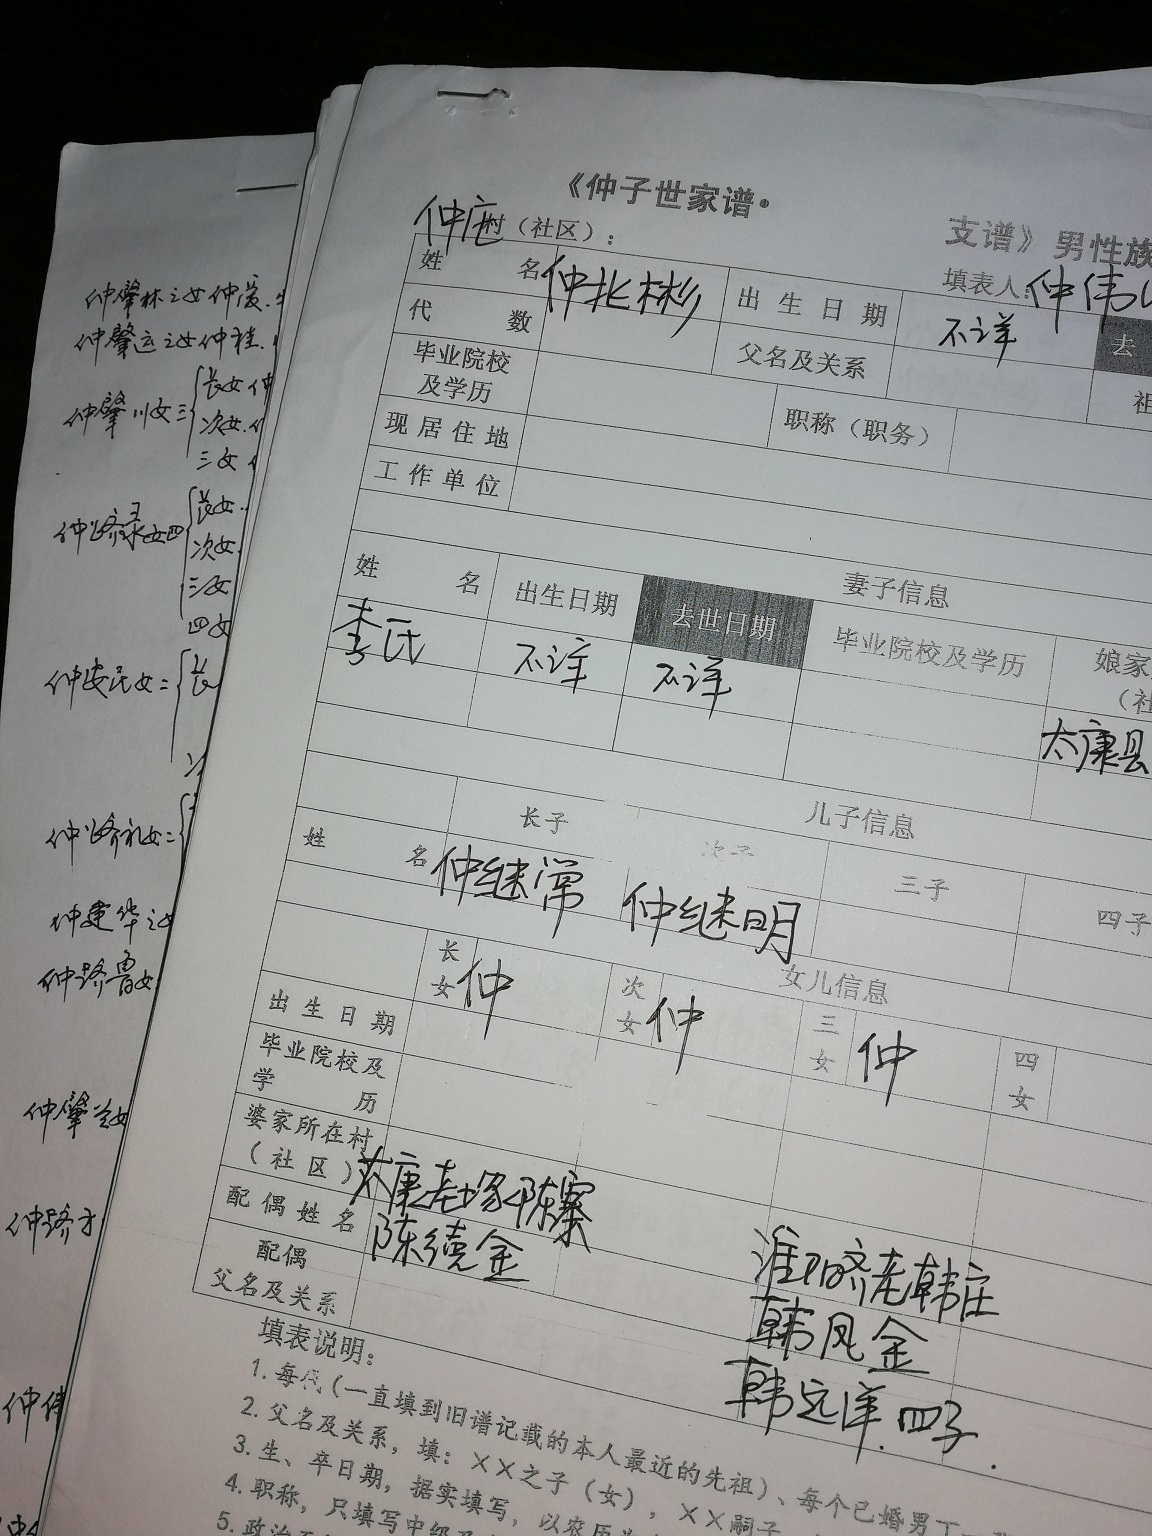 《仲子世家谱·
支谱》男性族
仲庄村（社区）：
填表人：仲伟
姓名 仲兆彬 出生日期 不详 去
代数 父名及关系 祖
毕业院校及学历 职称（职务）
现居住地
工作单位
妻子信息
姓名 出生日期 去世日期 毕业院校及学历 娘家
（社
李氏 不详 不详
太康县
儿子信息
长子 次子 三子 四子
姓名 仲继常 仲继明
女儿信息
长女 仲 次女 仲 三女 仲 四女
出生日期
毕业院校及学历
婆家所在村（社区） 陈寨 老韩庄
配偶姓名 陈德金 韩凤金
配偶父名及关系 四子
填表说明：
1. 每代（一直填到旧谱记载的本人最近的先祖）、每个已婚男丁一
2. 父名及关系，填：××之子（女），××嗣子
3. 生、卒日期，据实填写，以农历为
4. 职称，只填写中级及
5. 政治
仲肇林之女仲
仲肇运之女仲桂
仲肇川女三 长女 仲
次女
三女
女四 长女
次女
三女
四女
仲安民女二 长
女二
仲建华之女
仲肇兰女
仲伟